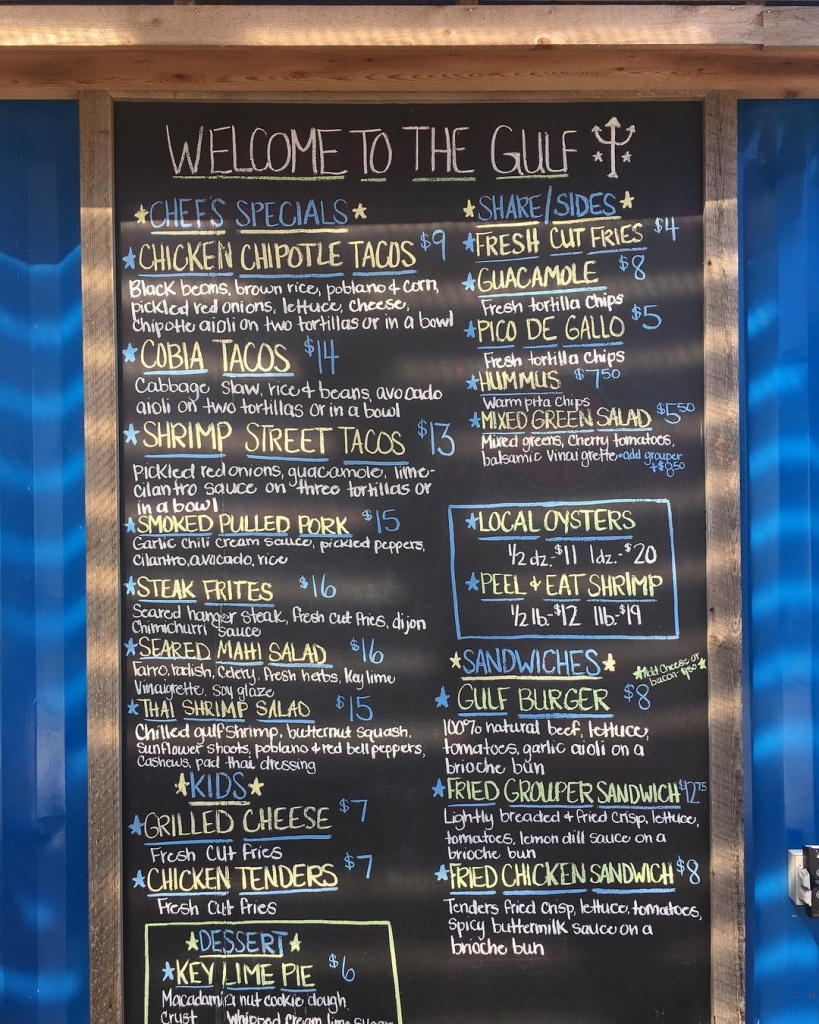 WELCOME TO THE GULF
CHEF'S SPECIALS
CHICKEN CHIPOTLE TACOS $9
Black beans, brown rice, poblano & corn,
pickled red onions, lettuce, cheese,
chipotle aioli on two tortillas or in a bowl
COBIA TACOS $14
Cabbage slaw, rice & beans, avocado
aioli on two tortillas or in a bowl
SHRIMP STREET TACOS $13
Pickled red onions, guacamole, lime-
cilantro sauce on three tortillas or
in a bowl
SMOKED PULLED PORK $15
Garlic chili cream sauce, pickled peppers,
cilantro, avocado, rice
STEAK FRITES $16
Seared hanger steak, fresh cut fries, dijon
chimichurri sauce
SEARED MAHI SALAD $16
Farro, radish, celery, fresh herbs, key lime
vinaigrette, soy glaze
THAI SHRIMP SALAD $15
Chilled gulf shrimp, butternut squash,
sunflower shoots, poblano & red bell peppers,
cashews, pad thai dressing
KIDS
GRILLED CHEESE $7
Fresh cut fries
CHICKEN TENDERS $7
Fresh cut fries
DESSERT
KEY LIME PIE $6
Macadamia nut cookie dough
crust whipped cream lime sugar
SHARE/SIDES
FRESH CUT FRIES $4
GUACAMOLE $8
Fresh tortilla chips
PICO DE GALLO $5
Fresh tortilla chips
HUMMUS $7.50
Warm pita chips
MIXED GREEN SALAD $5.50
Mixed greens, cherry tomatoes,
balsamic vinaigrette - add grouper
+$8.50
LOCAL OYSTERS
1/2 dz.-$11 1dz.-$20
PEEL & EAT SHRIMP
1/2 lb.-$12 1lb.-$19
SANDWICHES
Add cheese or
bacon $1.50
GULF BURGER $8
100% natural beef, lettuce,
tomatoes, garlic aioli on a
brioche bun
FRIED GROUPER SANDWICH $12.75
Lightly breaded & fried crisp, lettuce,
tomatoes, lemon dill sauce on a
brioche bun
FRIED CHICKEN SANDWICH $8
Tenders fried crisp, lettuce, tomatoes,
spicy buttermilk sauce on a
brioche bun